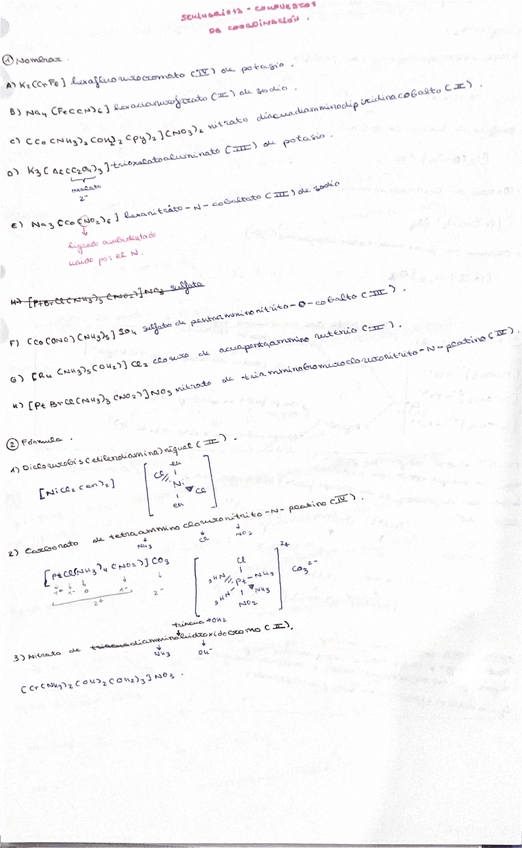 SEMINARIO 13 - COMPUESTOS
DE COORDINACIÓN.
① Nombrar.
A) K₂[CrF₆] hexafluorurocromato (IV) de potasio.
B) Na₄[Fe(CN)₆] hexacianuroferrato (II) de sodio.
C) [Co(NH₃)₂(OH₂)₂(py)₂](NO₃)₂ nitrato diacuadiamminodipiridinacobalto (II).
D) K₃[Al(C₂O₄)₃] trioxalatoaluminato (III) de potasio.
oxalato
2⁻
E) Na₃[Co(NO₂)₆] hexanitrito-N-cobaltato (III) de sodio
ligando ambidentado
unido por el N.
H) [PtBrCl(NH₃)₃(NO₂)]NO₃ sulfato
F) [Co(ONO)(NH₃)₅]SO₄ sulfato de pentaamminonitrito-O-cobalto (III).
G) [Ru(NH₃)₅(OH₂)]Cl₂ cloruro de acuapentaammino rutenio (II).
H) [PtBrCl(NH₃)₃(NO₂)]NO₃ nitrato de triamminobromurocloruronitrito-N-platino (IV).
② Fórmula.
1) Diclorurobis(etilendiamina)níquel (II).
[NiCl₂(en)₂]
en
Cl Ni Cl
en
2) Carbonato de tetraamminocloruronitrito-N-platino (IV).
NH₃ Cl NO₂
[PtCl(NH₃)₄(NO₂)]CO₃
4+ 1- 0 1- 2⁻
2+
Cl
3HN Pt NH₃
3HN NH₃
NO₂
2+
CO₃²⁻
triacua → OH₂
3) Nitrato de diamminohidroxidocromo (II).
NH₃ OH⁻
[Cr(NH₃)₂(OH)₂(OH₂)₃]NO₃.